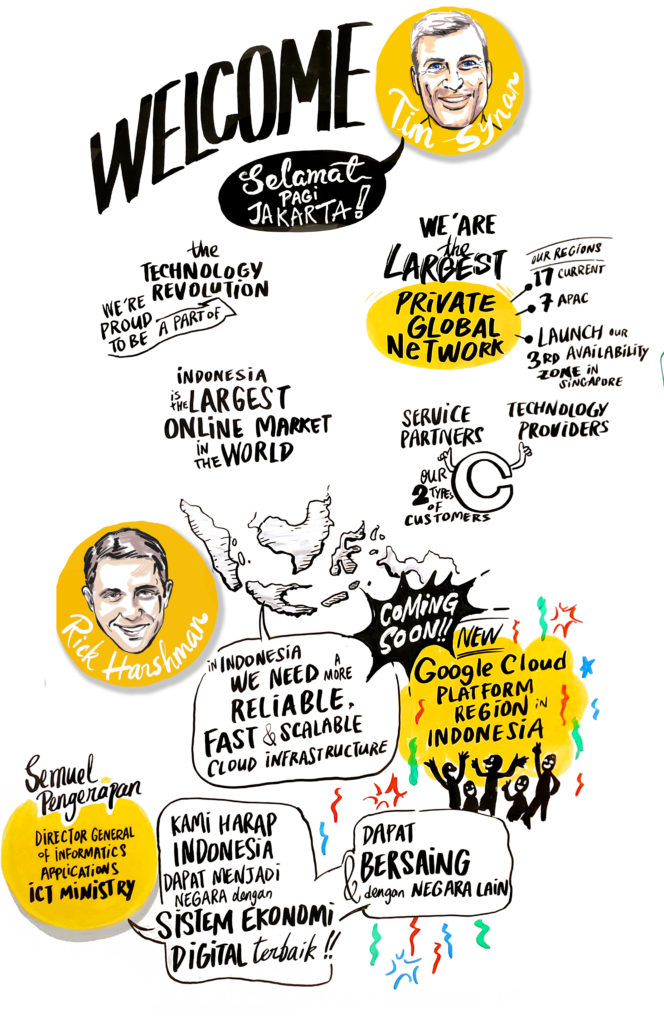 WELCOME
Tim Synan
Selamat
PAGI
JAKARTA!
the
TECHNOLOGY
REVOLUTION
WE'RE
PROUD
TO BE
A PART OF
WE'ARE
the
LARGEST
PRIVATE
GLOBAL
NETWORK
OUR REGIONS
17 CURRENT
7 APAC
LAUNCH OUR
3RD AVAILABILITY
ZONE IN
SINGAPORE
INDONESIA
is the LARGEST
ONLINE MARKET
IN
THE WORLD
SERVICE
PARTNERS
TECHNOLOGY
PROVIDERS
C
OUR
2 TYPES
OF
CUSTOMERS
Rick Harshman
in INDONESIA
WE NEED A
MORE
RELIABLE,
FAST & SCALABLE
CLOUD INFRASTRUCTURE
COMING
SOON!!
NEW
Google Cloud
PLATFORM
REGION in
INDONESIA
Semuel
Pengerapan
DIRECTOR GENERAL
OF INFORMATICS
APPLICATIONS
ICT MINISTRY
KAMI HARAP
INDONESIA
DAPAT MENJADI
NEGARA dengan
SISTEM EKONOMI
DIGITAL terbaik!!
&
DAPAT
BERSAING
dengan NEGARA LAIN